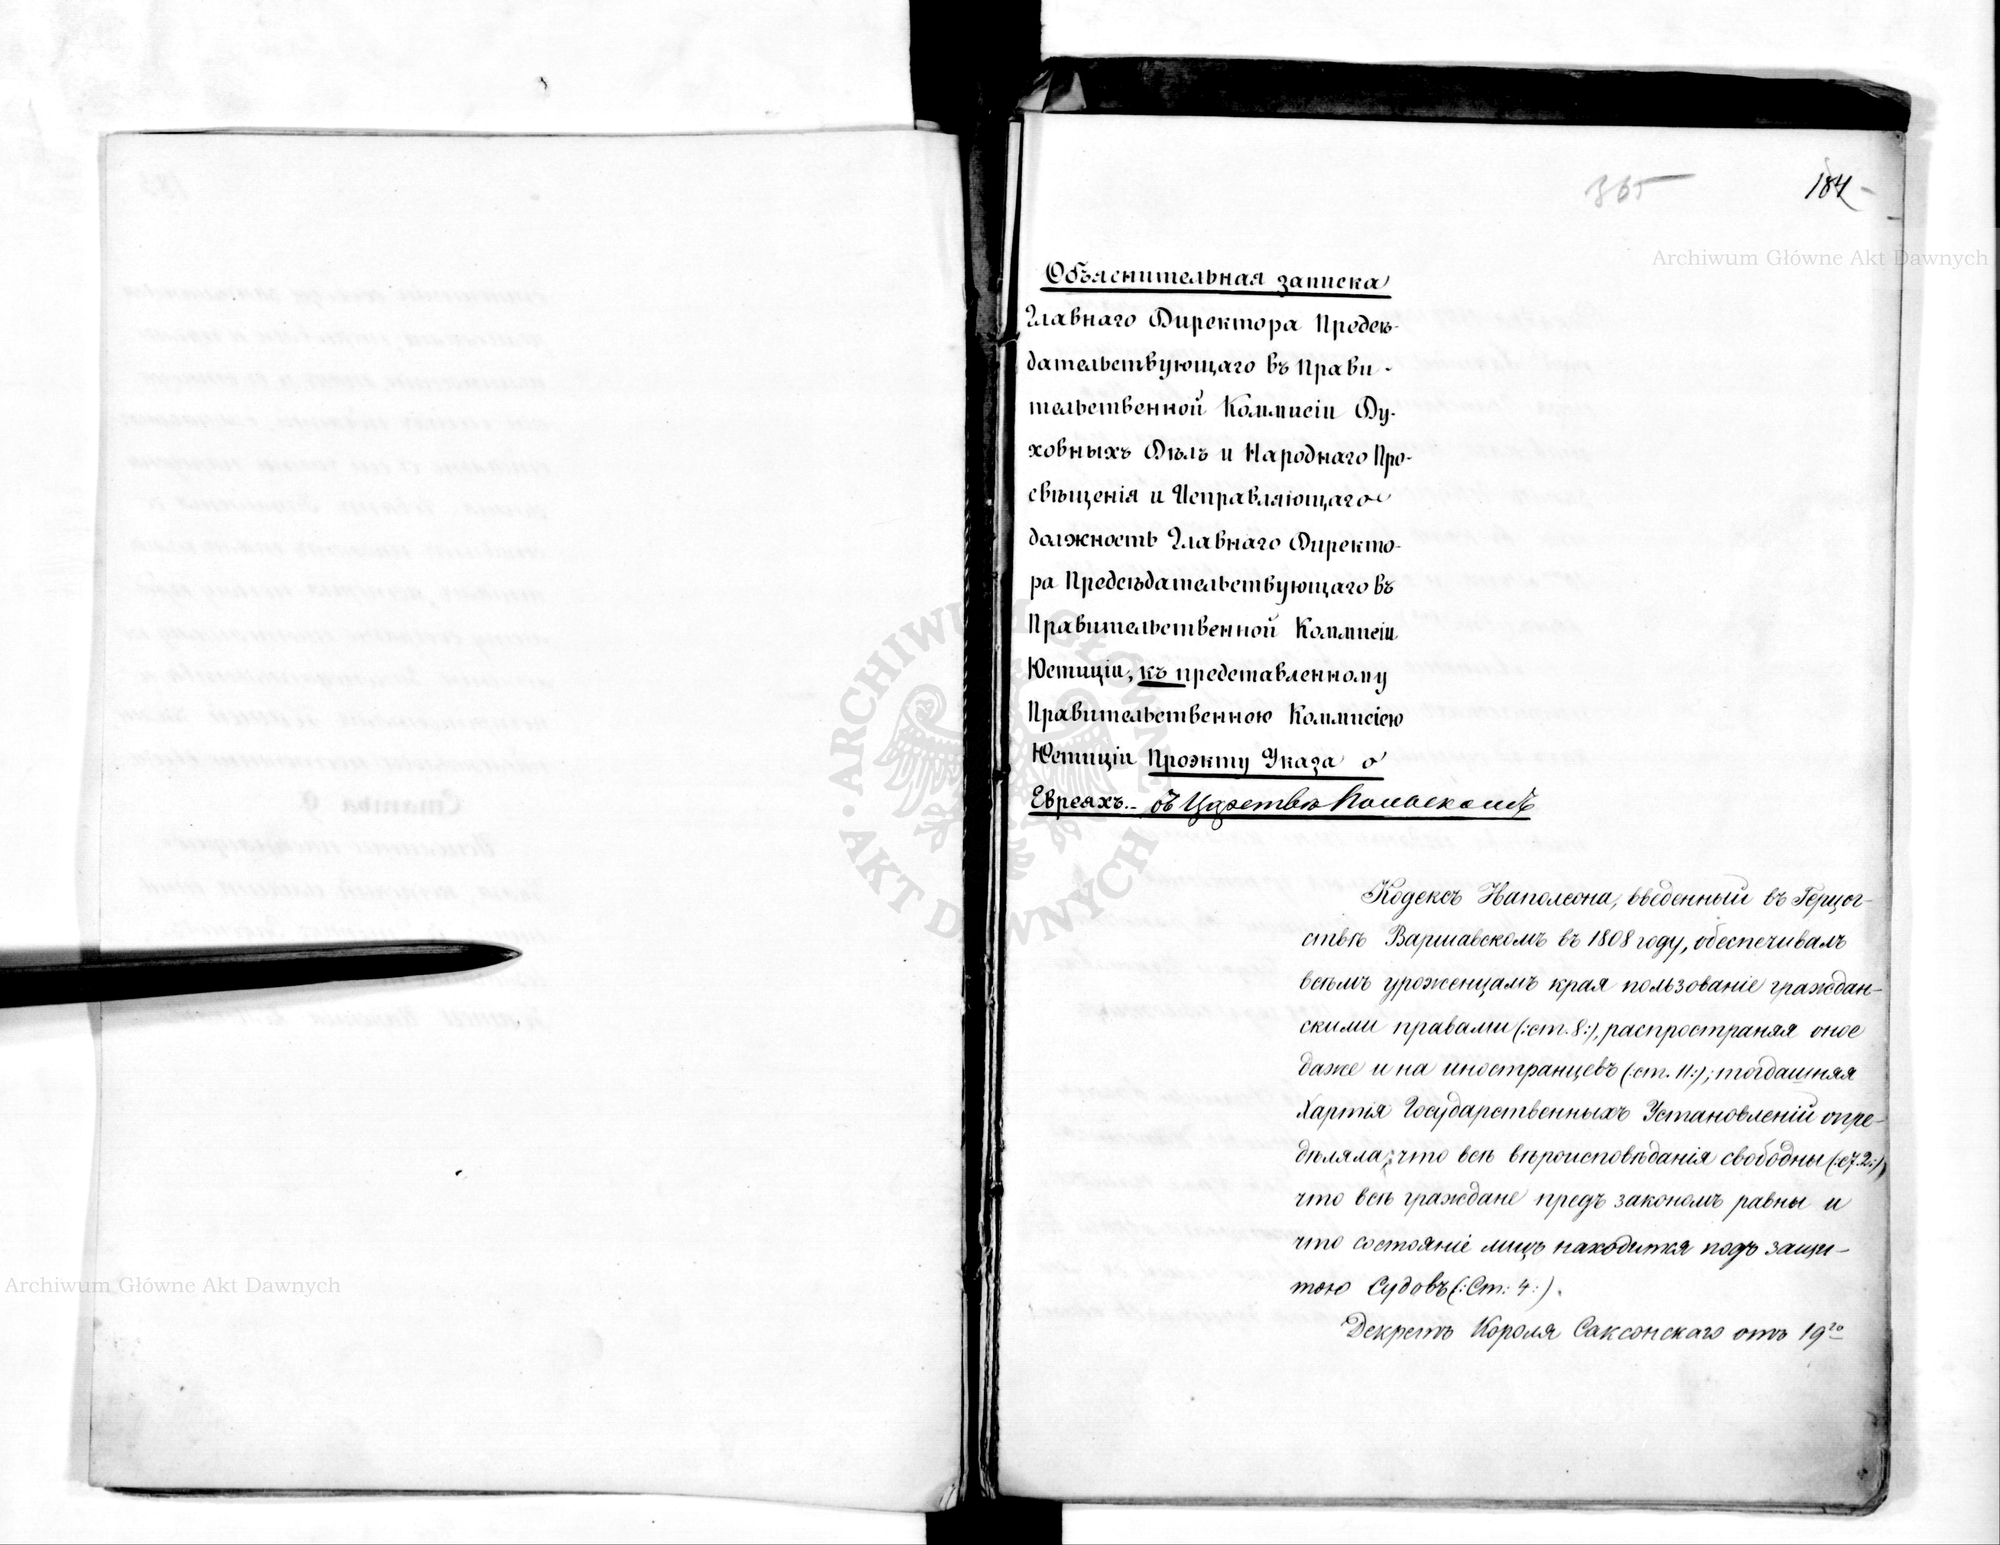 365
184
Archiwum Główne Akt Dawnych
Объяснительная записка
Главнаго Директора Предсѣ-
дательствующаго въ Прави-
тельственной Коммисіи Ду-
ховныхъ Дѣлъ и Народнаго Про-
свѣщенія и Исправляющаго
должность Главнаго Директо-
ра Предсѣдательствующаго въ
Правительственной Коммисіи
Юстиціи, къ представленному
Правительственною Коммисіею
Юстиціи Проэкту Указа о
Евреяхъ.- въ Царствѣ Польскомъ
ARCHIWUM GŁÓWNE AKT DAWNYCH
Кодексъ Наполеона, введенный въ Герцог-
ствѣ Варшавскомъ въ 1808 году, обеспечивалъ
всѣмъ уроженцамъ края пользованіе граждан-
скими правами (:ст. 8:), распространяя оное
даже и на иностранцевъ (:ст. 11:); тогдашняя
Хартія Государственныхъ Установленій опре-
дѣляла, что всѣ вѣроисповѣданія свободны (:ст. 2:),
что всѣ граждане предъ закономъ равны и
что состояніе лицъ находится подъ защи-
тою Судовъ (:Ст: 4:).
Декретъ Короля Саксонскаго отъ 19го
Archiwum Główne Akt Dawnych